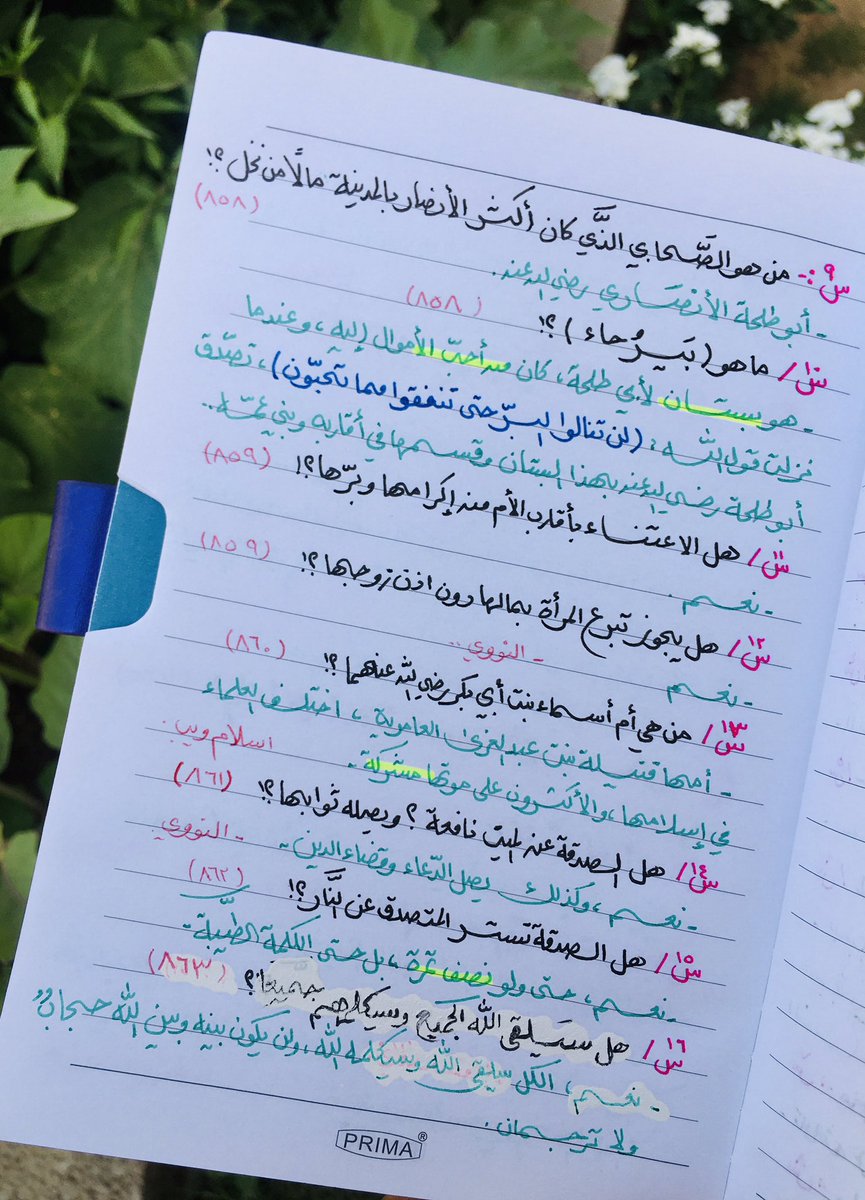 س٩:- من هو الصَّحابي الذَّي كان أكثر الأنصار بالمدينة مالًا من نخل؟! (٨٥٨)
- أبو طلحة الأنصاري رضي الله عنه.
س١٠/ ما هو (بَيرُحاء)؟! (٨٥٨)
- هو بستان لأبي طلحة، كان من أحبّ الأموال إليه، وعندما
نزلت قول الله: (لن تنالوا البرّ حتى تنفقوا مما تحبّون)، تصدّق
أبو طلحة رضي الله عنه بهذا البستان وقسمها في أقاربه وبني عمّه..
س١١/ هل الاعتناء بأقارب الأم من إكرامها وبرّها؟! (٨٥٩)
- نعم.
س١٢/ هل يجوز تبرع المرأة بمالها دون اذن زوجها؟! (٨٥٩)
- نعم - النووي..
س١٣/ من هي أم أسماء بنت أبي بكر رضي الله عنهما؟! (٨٦٠)
- أمها قتيلة بنت عبد العزى العامرية، اختلف العلماء
في إسلامها، والأكثرون على موتها مشركة. اسلام ويب.
س١٤/ هل الصدقة عن الميت نافعة؟ ويصله ثوابها؟! (٨٦١)
- نعم، وكذلك يصل الدّعاء وقضاء الدين. - النووي
س١٥/ هل الصدقة تستر المتصدق عن النَّار؟! (٨٦٢)
- نعم، حتى ولو نصف تمرة، بل حتى الكلمة الطيّبة.
س١٦/ هل سيلقى الله الجميع وسيكلمهم جميعًا؟ (٨٦٣)
- نعم، الكل سيلقى الله وسيكلمه الله، ولن يكون بينه وبين الله حجابٌ
ولا ترجمان.
PRIMA®